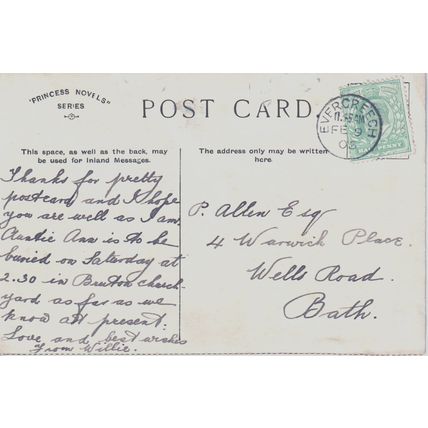 "PRINCESS NOVELS"
SERIES
POST CARD
EVERCREECH
11.45 AM
FE 9
This space, as well as the back, may
be used for Inland Messages.
The address only may be written
here.
Thanks for pretty
postcard and I hope
you are well as I am.
Auntie Ann is to be
buried on Saturday at
2.30 in Bruton church-
yard as far as we
know at present.
Love and best wishes
From Willie.
P. Allen Esq
4 Warwick Place.
Wells Road.
Bath.